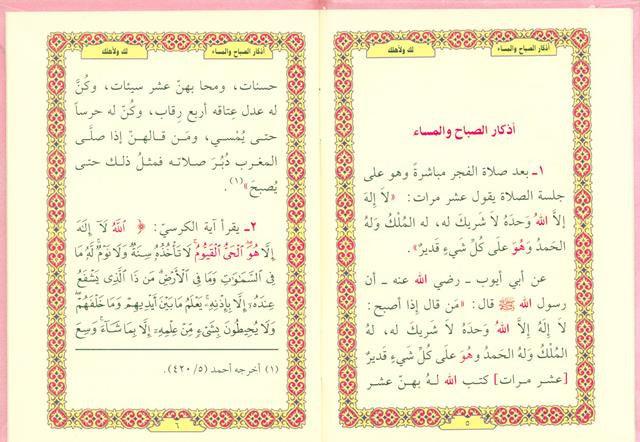 أذكار الصباح والمساء
لك ولأهلك
أذكار الصباح والمساء
١ـ بعد صلاة الفجر مباشرة وهو على
جلسة الصلاة يقول عشر مرات: «لَا إِلهَ
إلاَّ اللهُ وَحدَهُ لَا شَريكَ لَه، له المُلْكُ وَلهُ
الحَمدُ وهُوَ عَلَى كُلِّ شَيءٍ قَديرٌ».
عن أبي أيوب ـ رضي الله عنه ـ أن
رسول الله ﷺ قال: «مَن قال إذا أصبح:
لَا إِلهَ إلاَّ اللهُ وَحدَهُ لَا شَريكَ لَه، لهُ
المُلْكُ وَلهُ الحَمدُ وهُوَ عَلَى كُلِّ شَيءٍ قَديرٌ
[عشر مرات] كتب الله لهُ بهنّ عشر
٥
أذكار الصباح والمساء
لك ولأهلك
حسنات، ومحا بهنّ عشر سيئات، وكُنَّ
له عدل عِتاقه أربع رقاب، وكُنّ له حرساً
حتى يُمْسي، ومَن قالهنّ إذا صلَّى
المغرب دُبُرَ صلاته فمثلُ ذلك حتى
يُصبحَ»(١).
٢ـ يقرأ آية الكرسيّ: ﴿ اللَّهُ لَا إِلَهَ
إِلَّا هُوَ الْحَيُّ الْقَيُّومُ لَا تَأْخُذُهُ سِنَةٌ وَلَا نَوْمٌ لَهُ مَا
فِي السَّمَاوَاتِ وَمَا فِي الْأَرْضِ مَن ذَا الَّذِي يَشْفَعُ
عِندَهُ إِلَّا بِإِذْنِهِ يَعْلَمُ مَا بَيْنَ أَيْدِيهِمْ وَمَا خَلْفَهُمْ
وَلَا يُحِيطُونَ بِشَيْءٍ مِنْ عِلْمِهِ إِلَّا بِمَا شَاءَ وَسِعَ
(١) أخرجه أحمد (٥/ ٤٢٠).
٦